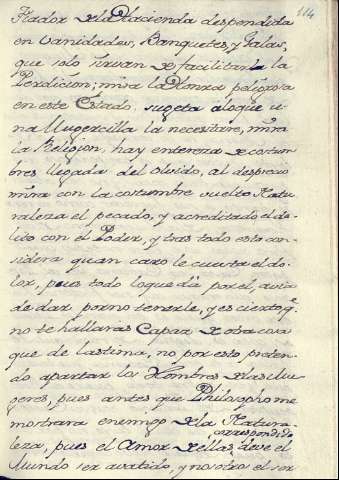 114
dador de la Hacienda despendida
en vanidades, Banquetes, y Galas,
que solo sirvan de facilitarla la
Perdicion; mira la Honra peligrosa
en este Estado, sugeta aloque u-
na Mugercilla la necesitare, mira
la Religion, hay entereza de costum
bres llegada del olvido, al desprecio
mira con la costumbre vuelto Natu
raleza el pecado, y acreditado el de-
lito con el Poder, y tras todo esto con-
sidera quan caro le cuesta el do-
lor, pues todo loque dà por el, avia
de dar porno tenerle, y es cierto, q.e
no te hallaras Capaz de otra cosa
que de lastima, no por esto preten-
do apartar los Hombres delas Mu-
geres, pues antes que Philosopho me
mostrara enemigo dela Natura-
correspondido
leza, pues el Amor dellas, deve el
Mundo ser avatido, y no otro el ser